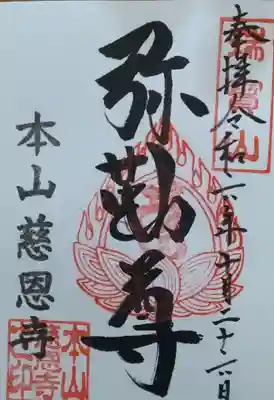 奉拝 令和六年十月二十六日
瑞寳山
弥勒尊
本山慈恩寺
本山
慈恩寺
之印